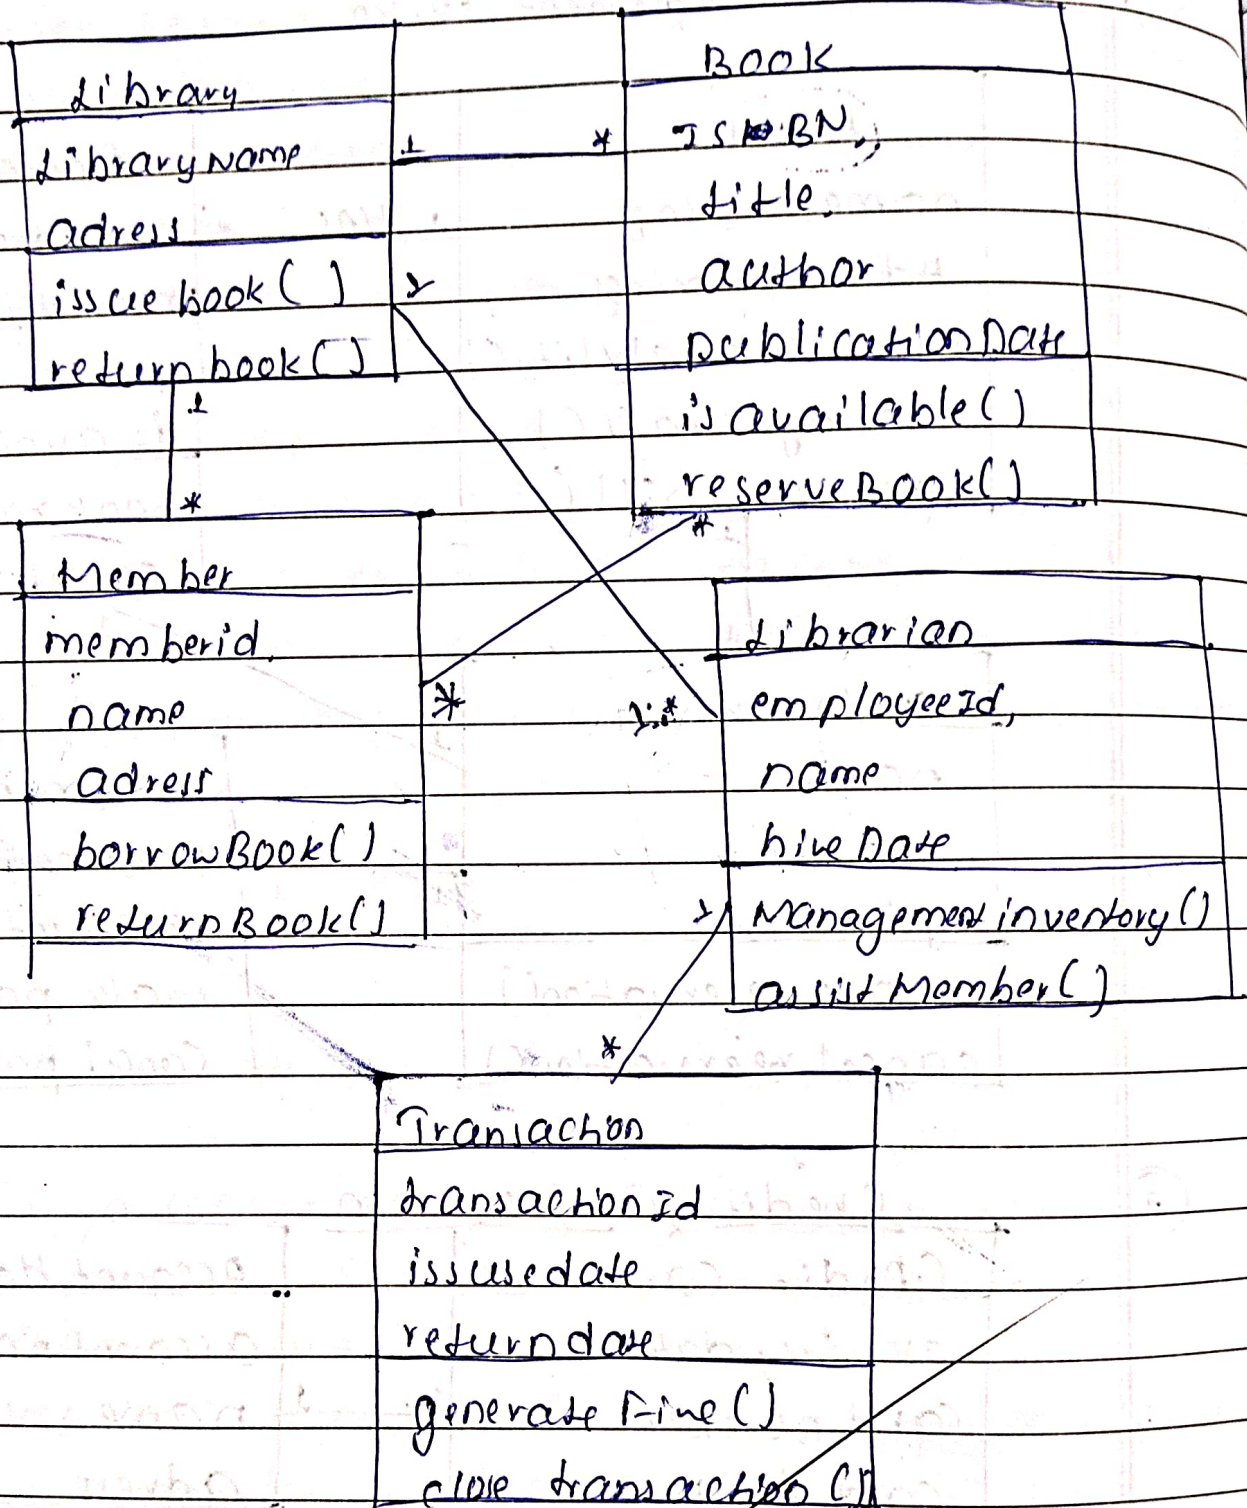 Library
LibraryName
adress
issuebook()
returnbook()
1
*
1
1
*
Book
ISBN,
title,
author
publicationDate
isavailable()
reserveBook()
*
Member
memberid,
name
adress
borrowBook()
returnBook()
*
1..*
Librarian
employeeId,
name
hireDate
Management inventory()
assistMember()
1
*
Transaction
transactionId
issusedate
returndate
generateFine()
close transaction()